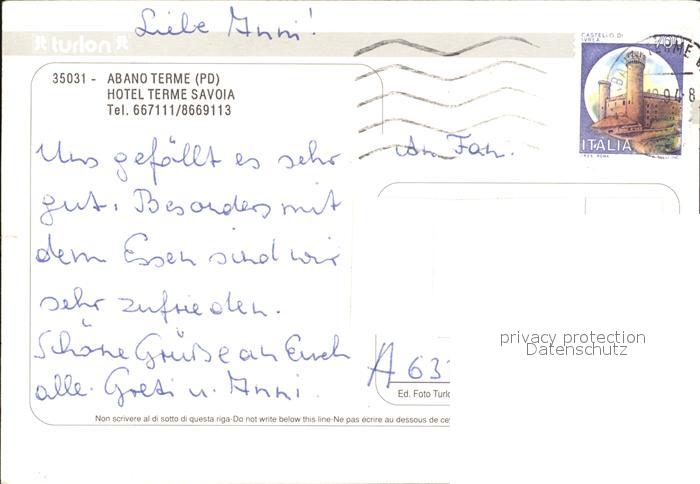 Liebe Anni!
turlon
35031 - ABANO TERME (PD)
HOTEL TERME SAVOIA
Tel. 667111/8669113
CASTELLO DI
IVREA
ITALIA
An Fam.
Uns gefällt es sehr
gut. Besonders mit
dem Essen sind wir
sehr zufrieden.
Schöne Grüße an Euch
alle. Greti u. Anni.
A 63
privacy protection
Datenschutz
Ed. Foto Turlo
Non scrivere al di sotto di questa riga-Do not write below this line-Ne pas écrire au dessous de ce